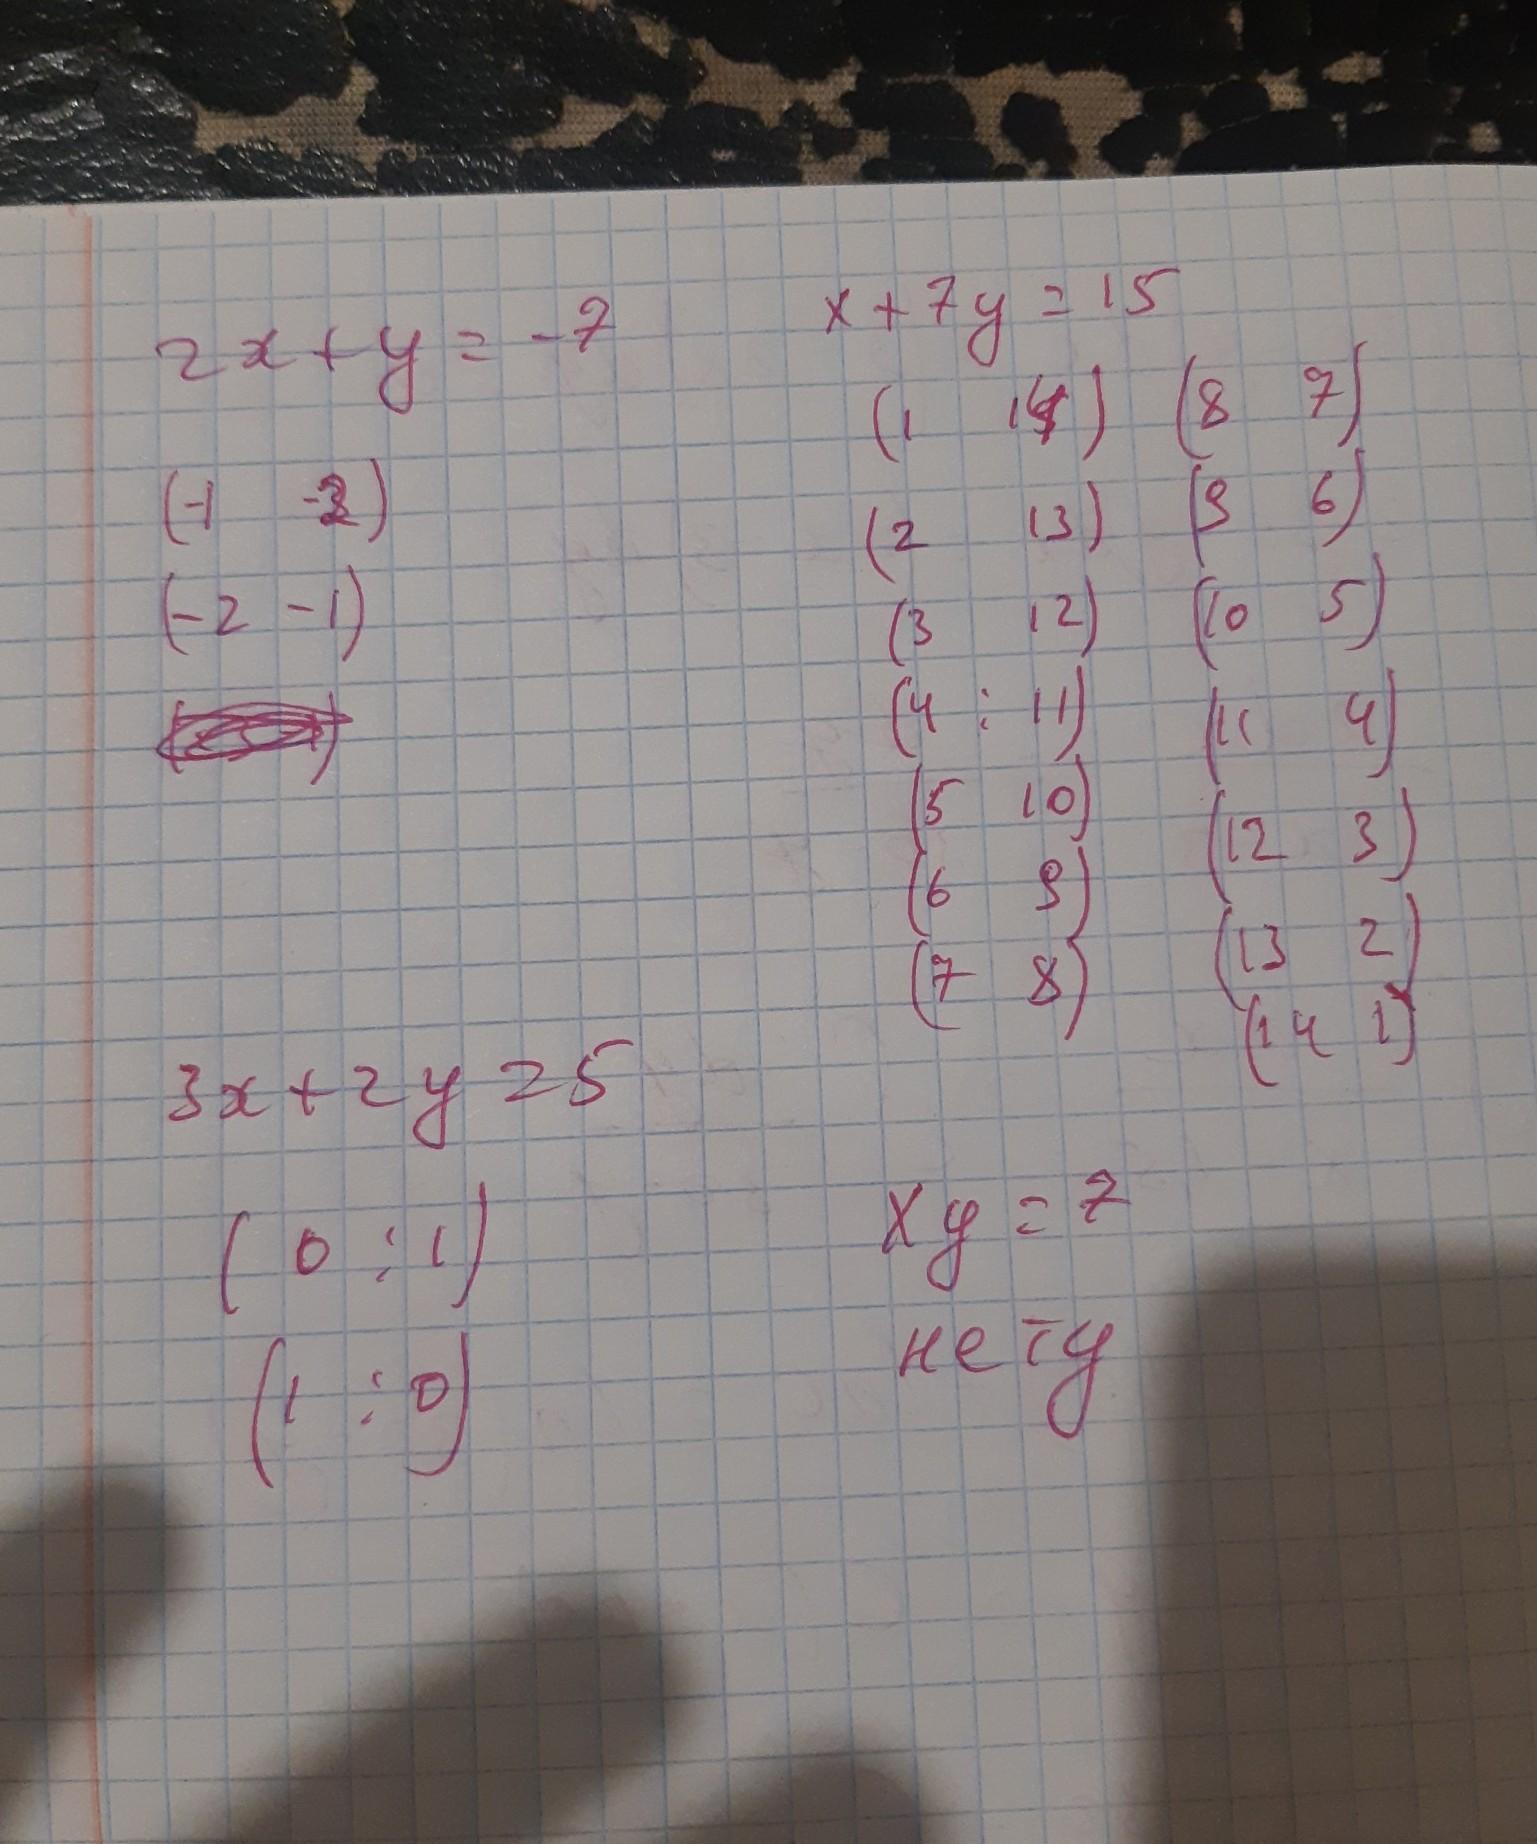 2x+y=-7
(-1 -2)
(-2 -1)
x+7y=15
(1 14)
(2 13)
(3 12)
(4 : 11)
(5 10)
(6 9)
(7 8)
(8 7)
(9 6)
(10 5)
(11 4)
(12 3)
(13 2)
(14 1)
3x+2y=5
(0 : 1)
(1 : 0)
xy=7
нету